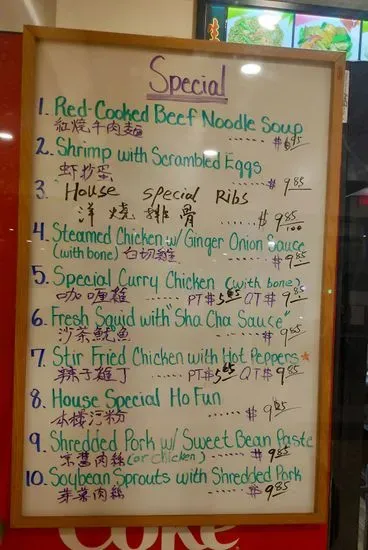 Special
1. Red-Cooked Beef Noodle Soup
紅燒牛肉麵 ...... $6.95
2 Shrimp with Scrambled Eggs
虾炒蛋 ...... $ 9.85
3 House Special Ribs
洋燒排骨 ..... $ 9.85/100
4. Steamed Chicken w/ Ginger Onion Sauce
(with bone) 白切雞 ...... $ 9.85
5. Special Curry Chicken (with bone)
咖喱雞 ...... PT$ 5.65 QT$ 9.85
6. Fresh Squid with "Sha Cha Sauce"
沙茶魷鱼 ...... $ 9.85
7. Stir Fried Chicken with Hot Peppers *
辣子雞丁 ..... PT$ 5.65 QT$ 9.85
8. House Special Ho Fun
本樓河粉 ...... $ 9.25
9. Shredded Pork w/ Sweet Bean Paste
京酱肉絲 (or chicken) ..... $ 9.85
10. Soybean Sprouts with Shredded Pork
芽菜肉絲 ...... $ 9.85
Coke